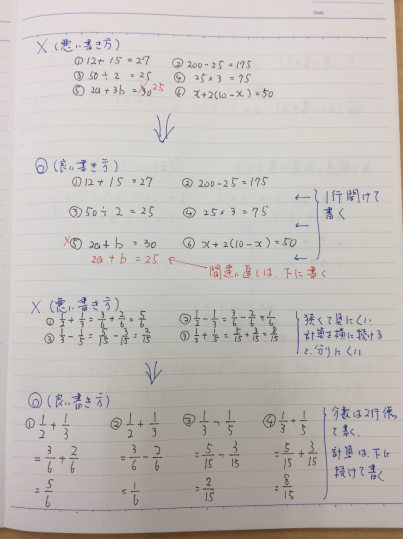 Date
X (悪い書き方)
①12+15=27 ②200-25=175
③50÷2=25 ④25×3=75
⑤2a+3b=30 25 ⑥x+2(10-x)=50
◎(良い書き方)
①12+15=27 ②200-25=175
③50÷2=25 ④25×3=75
X⑤2a+b=30 ⑥x+2(10-x)=50
2a+b=25
1行開けて
書く
間違い直しは、下に書く
X (悪い書き方)
①1/2+1/3=3/6+2/6=5/6 ②1/2-1/3=3/6-2/6=1/6
③1/3-1/5=5/15-3/15=2/15 ④1/3+1/5=5/15+3/15=8/15
狭くて見にくい
計算を横に続ける
と、分りにくい
◎(良い書き方)
①1/2+1/3 ②1/2+1/3 ③1/3-1/5 ④1/3+1/5
=3/6+2/6 =3/6-2/6 =5/15-3/15 =5/15+3/15
=5/6 =1/6 =2/15 =8/15
分数は2行使
って書く.
計算は、下に
続けて書く